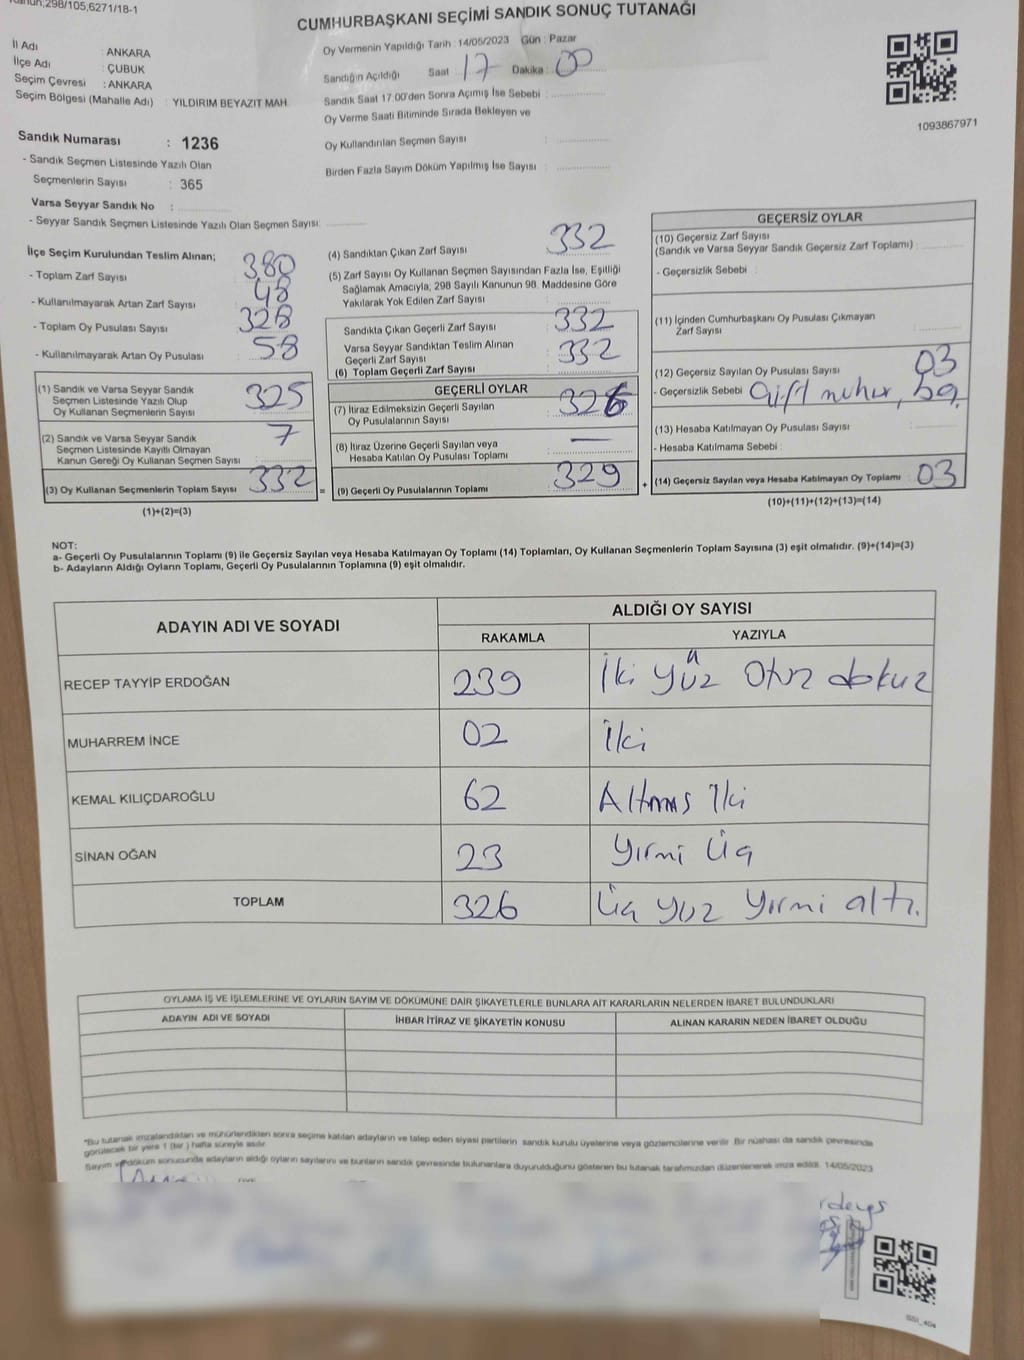 Kanun;298/105;6271/18-1
CUMHURBAŞKANI SEÇİMİ SANDIK SONUÇ TUTANAĞI
İl Adı : ANKARA
İlçe Adı : ÇUBUK
Seçim Çevresi : ANKARA
Seçim Bölgesi (Mahalle Adı) : YILDIRIM BEYAZIT MAH.
Oy Vermenin Yapıldığı Tarih : 14/05/2023 Gün : Pazar
Sandığın Açıldığı Saat : 17 Dakika : 00
Sandık Saat 17:00'den Sonra Açımış İse Sebebi :
Oy Verme Saati Bitiminde Sırada Bekleyen ve
Oy Kullandırılan Seçmen Sayısı :
Birden Fazla Sayım Döküm Yapılmış İse Sayısı :
1093867971
Sandık Numarası : 1236
- Sandık Seçmen Listesinde Yazılı Olan
Seçmenlerin Sayısı : 365
Varsa Seyyar Sandık No :
- Seyyar Sandık Seçmen Listesinde Yazılı Olan Seçmen Sayısı:
İlçe Seçim Kurulundan Teslim Alınan;
- Toplam Zarf Sayısı : 380
- Kullanılmayarak Artan Zarf Sayısı : 48
- Toplam Oy Pusulası Sayısı : 328
- Kullanılmayarak Artan Oy Pusulası : 58
(1) Sandık ve Varsa Seyyar Sandık
Seçmen Listesinde Yazılı Olup
Oy Kullanan Seçmenlerin Sayısı : 325
(2) Sandık ve Varsa Seyyar Sandık
Seçmen Listesinde Kayıtlı Olmayan
Kanun Gereği Oy Kullanan Seçmen Sayısı : 7
(3) Oy Kullanan Seçmenlerin Toplam Sayısı : 332 =
(1)+(2)=(3)
(4) Sandıktan Çıkan Zarf Sayısı : 332
(5) Zarf Sayısı Oy Kullanan Seçmen Sayısından Fazla İse, Eşitliği
Sağlamak Amacıyla; 298 Sayılı Kanunun 98. Maddesine Göre
Yakılarak Yok Edilen Zarf Sayısı :
Sandıkta Çıkan Geçerli Zarf Sayısı : 332
Varsa Seyyar Sandıktan Teslim Alınan
Geçerli Zarf Sayısı : 332
(6) Toplam Geçerli Zarf Sayısı :
GEÇERLİ OYLAR
(7) İtiraz Edilmeksizin Geçerli Sayılan
Oy Pusulalarının Sayısı : 326
(8) İtiraz Üzerine Geçerli Sayılan veya
Hesaba Katılan Oy Pusulası Toplamı : —
(9) Geçerli Oy Pusulalarının Toplamı : 329 +
GEÇERSİZ OYLAR
(10) Geçersiz Zarf Sayısı
(Sandık ve Varsa Seyyar Sandık Geçersiz Zarf Toplamı) :
- Geçersizlik Sebebi :
(11) İçinden Cumhurbaşkanı Oy Pusulası Çıkmayan
Zarf Sayısı :
(12) Geçersiz Sayılan Oy Pusulası Sayısı : 03
- Geçersizlik Sebebi : Çift mühür,
(13) Hesaba Katılmayan Oy Pusulası Sayısı :
- Hesaba Katılmama Sebebi :
(14) Geçersiz Sayılan veya Hesaba Katılmayan Oy Toplamı : 03
(10)+(11)+(12)+(13)=(14)
NOT:
a- Geçerli Oy Pusulalarının Toplamı (9) ile Geçersiz Sayılan veya Hesaba Katılmayan Oy Toplamı (14) Toplamları, Oy Kullanan Seçmenlerin Toplam Sayısına (3) eşit olmalıdır. (9)+(14)=(3)
b- Adayların Aldığı Oyların Toplamı, Geçerli Oy Pusulalarının Toplamına (9) eşit olmalıdır.
ADAYIN ADI VE SOYADI ALDIĞI OY SAYISI
RAKAMLA YAZIYLA
RECEP TAYYİP ERDOĞAN 239 İki yüz otuz dokuz
MUHARREM İNCE 02 İki
KEMAL KILIÇDAROĞLU 62 Altmış İki
SİNAN OĞAN 23 Yirmi Üç
TOPLAM 326 Üç yüz yirmi altı.
OYLAMA İŞ VE İŞLEMLERİNE VE OYLARIN SAYIM VE DÖKÜMÜNE DAİR ŞİKAYETLERLE BUNLARA AİT KARARLARIN NELERDEN İBARET BULUNDUKLARI
ADAYIN ADI VE SOYADI İHBAR İTİRAZ VE ŞİKAYETİN KONUSU ALINAN KARARIN NEDEN İBARET OLDUĞU
*Bu tutanak imzalandıktan ve mühürlendikten sonra seçime katılan adayların ve talep eden siyasi partilerin sandık kurulu üyelerine veya gözlemcilerine verilir. Bir nüshası da sandık çevresinde
görülecek bir yere 1 (bir) hafta süreyle asılır.
Sayım ve döküm sonucunda adayların aldığı oyların sayılarını ve bunların sandık çevresinde bulunanlara duyurulduğunu gösteren bu tutanak tarafımızdan düzenlenerek imza edildi. 14/05/2023